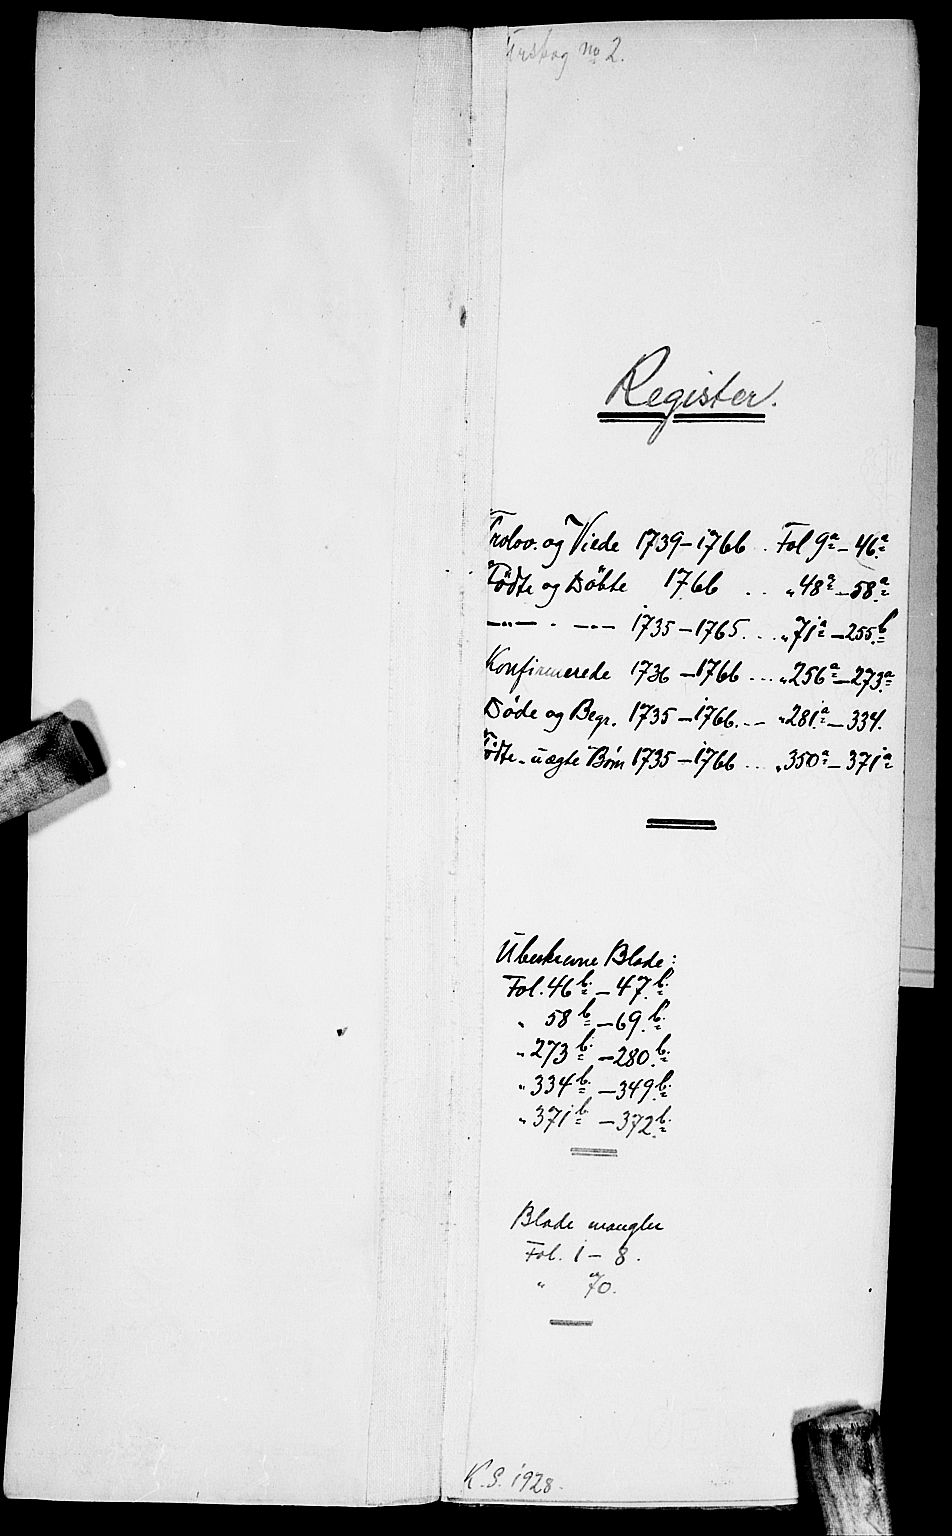 No 2.
Register.
Trolov. og Viede 1739-1766 .. Fol 9a - 46a
Födte og Döbte 1766 ... „ 48a - 58a
—„— . —„— 1735-1765 ... „ 71a - 255b
Konfirmerede 1736-1766 ... „ 256a - 273a
Döde og Begr. 1735-1766 ... „ 281a - 334.
Födte uægte Börn 1735-1766 ... „ 350a - 371a
Ubeskrevne Blade:
Fol. 46b. - 47.b.
„ 58b - 69.b.
„ 273b. - 280.b.
„ 334b. - 349b.
„ 371b. - 372b.
Blade mangler
Fol. 1 - 8.
„ 70.
K.S. 1928.